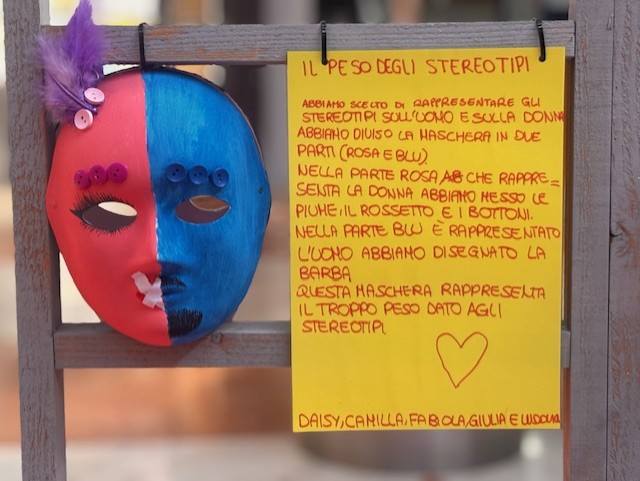 IL PESO DEGLI STEREOTIPI
ABBIAMO SCELTO DI RAPPRESENTARE GLI
STEREOTIPI SULL'UOMO E SULLA DONNA
ABBIAMO DIVISO LA MASCHERA IN DUE
PARTI (ROSA E BLU).
NELLA PARTE ROSA, CHE RAPPRE=
SENTA LA DONNA ABBIAMO MESSO LE
PIUME, IL ROSSETTO E I BOTTONI.
NELLA PARTE BLU È RAPPRESENTATO
L'UOMO ABBIAMO DISEGNATO LA
BARBA
QUESTA MASCHERA RAPPRESENTA
IL TROPPO PESO DATO AGLI
STEREOTIPI
DAISY, CAMILLA, FABIOLA, GIULIA E